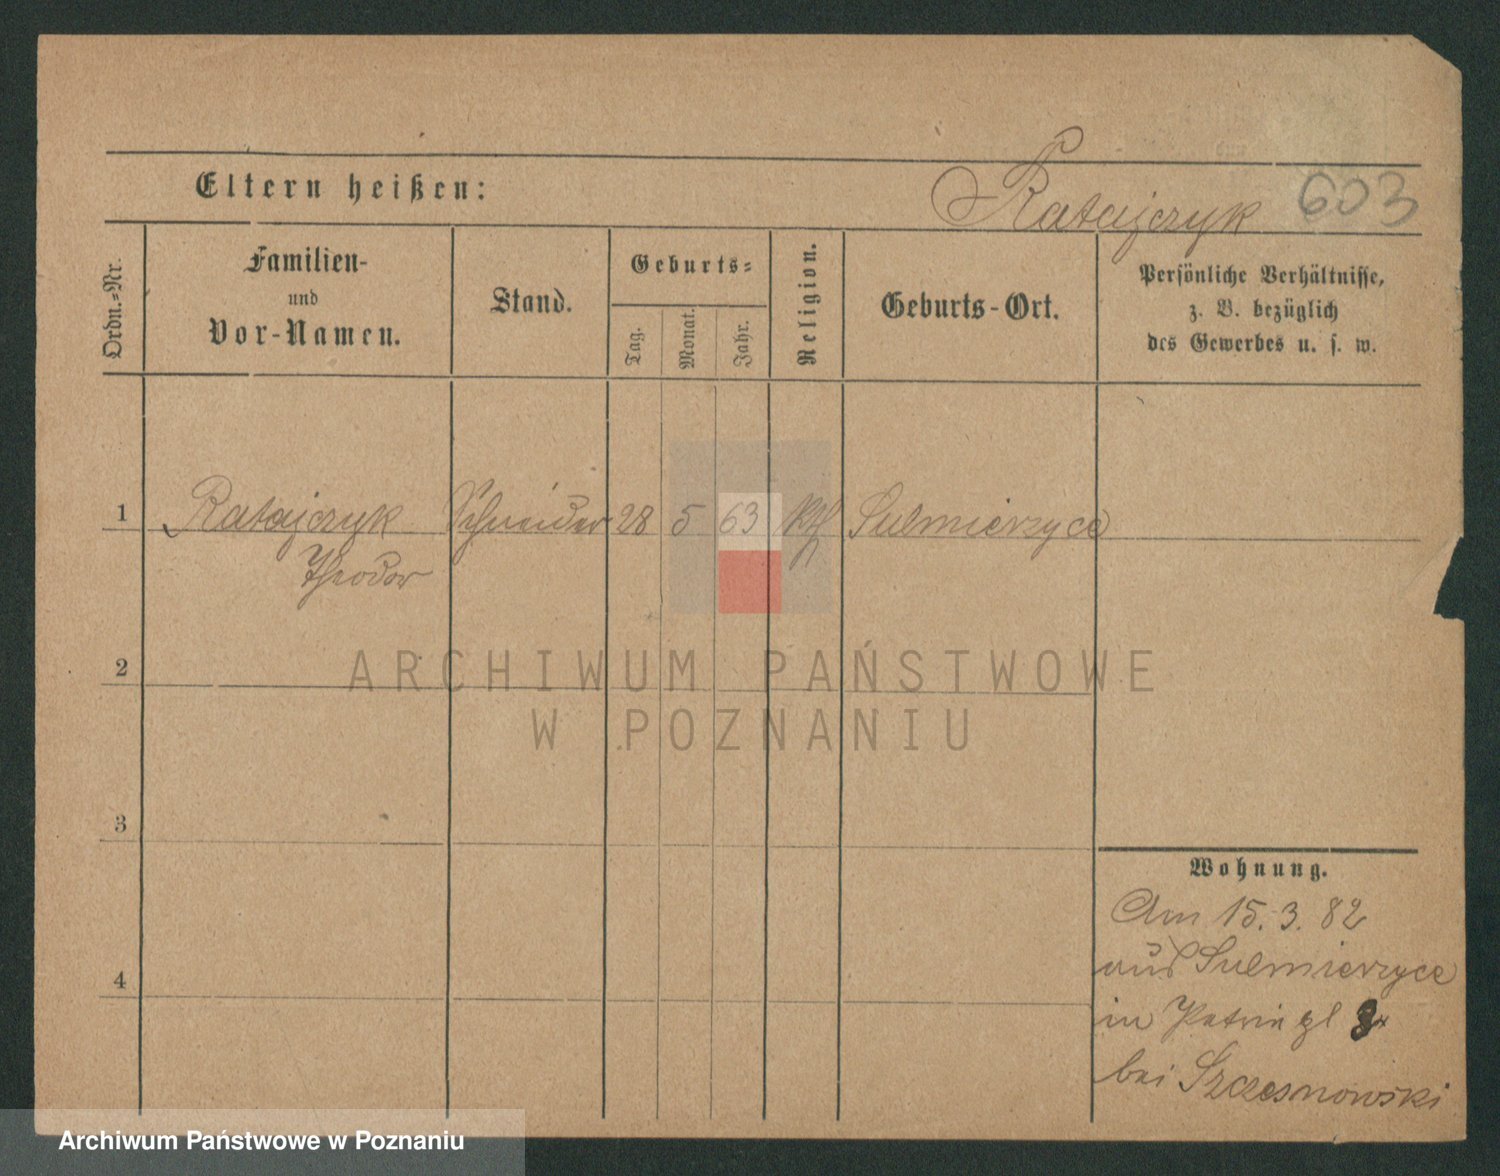 Eltern heißen:
Ratajczyk 603
Ordn.-Nr.
Familien-
und
Vor-Namen.
Stand.
Geburts-
Tag.
Monat.
Jahr.
Religion.
Geburts-Ort.
Persönliche Verhältnisse,
z. B. bezüglich
des Gewerbes u. s. w.
1 Ratajczyk Schneider 28 5 63 Kth Sulmierzyce
Theodor
2
3
4
Wohnung.
Am 15.3.82
aus Sulmierzyce
in Petripl
bei Szczesnowski
ARCHIWUM PAŃSTWOWE
W POZNANIU
Archiwum Państwowe w Poznaniu